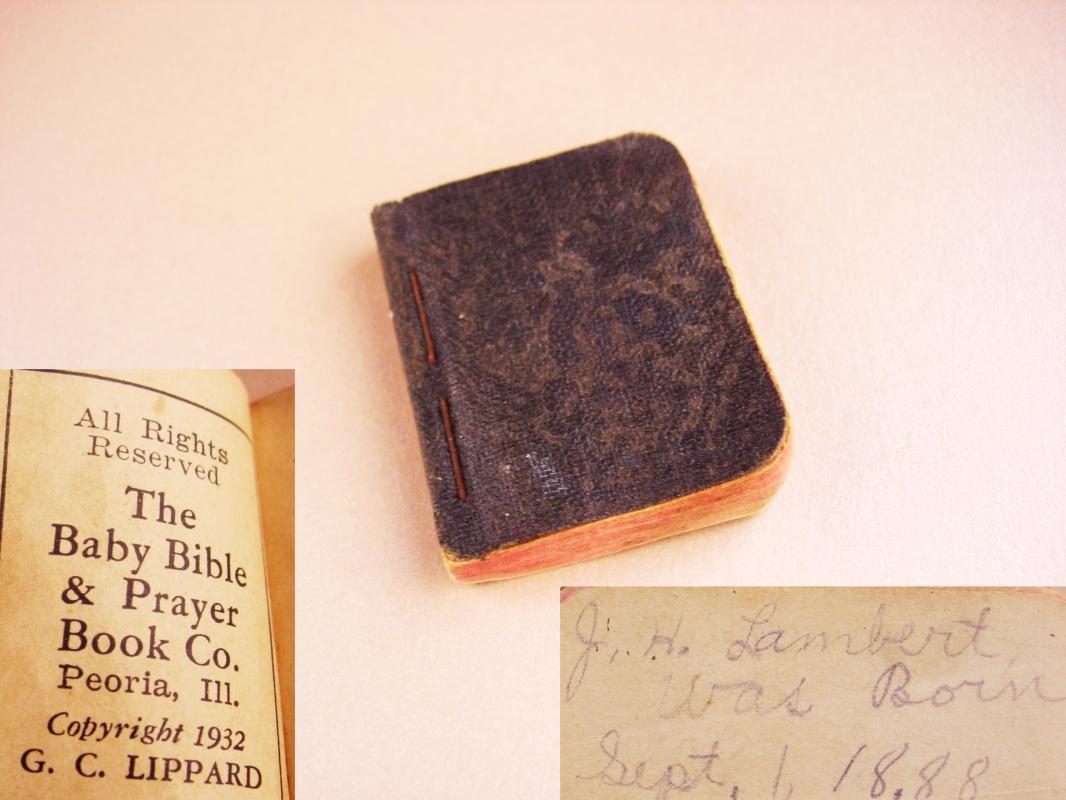 All Rights
Reserved
The
Baby Bible
& Prayer
Book Co.
Peoria, Ill.
Copyright 1932
G. C. LIPPARD
J. H. Lambert
Was Born
Sept, 1, 1888